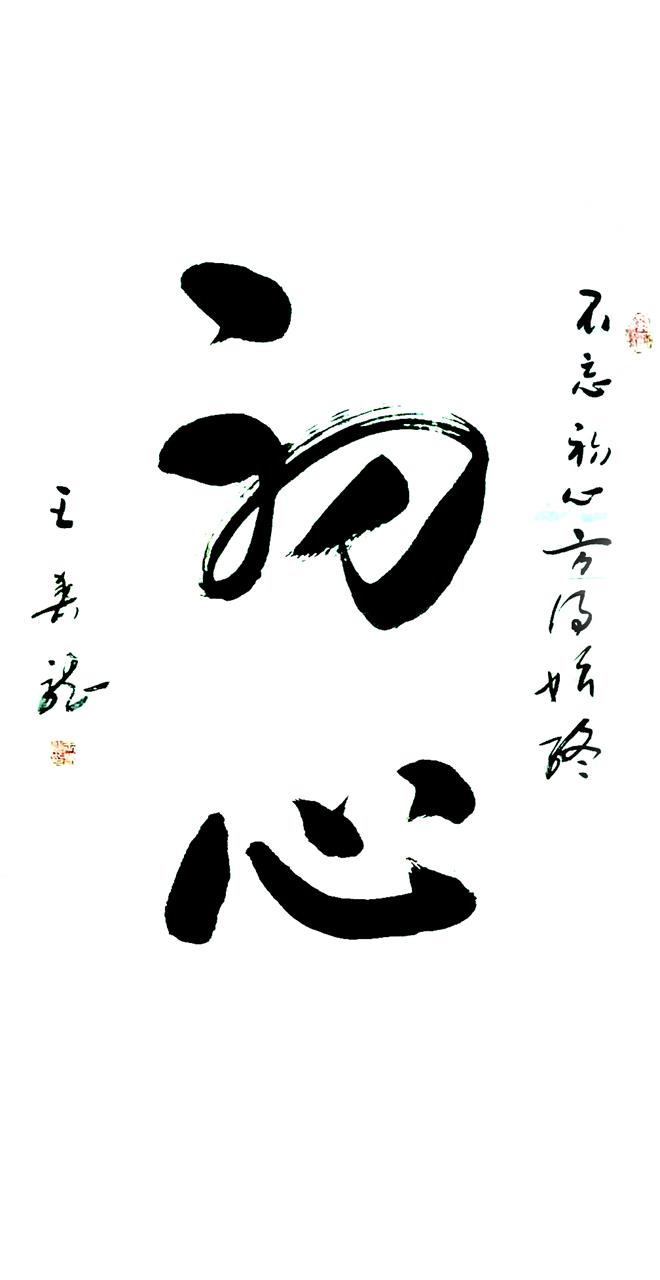 不忘初心方得始终
初心
王 龍